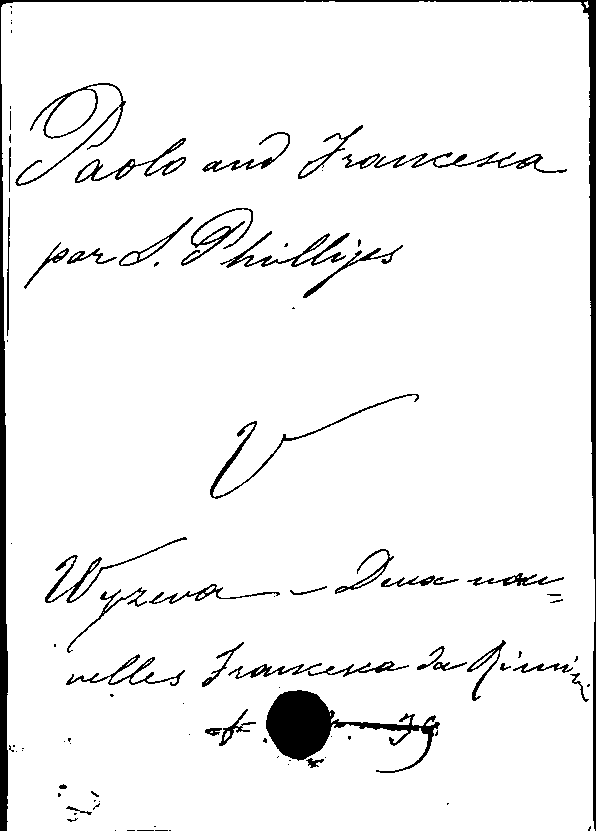 Paolo and Francesca
par S. Phillips
V
Wyzewa – Deux nou=
velles Francesca da Rimini